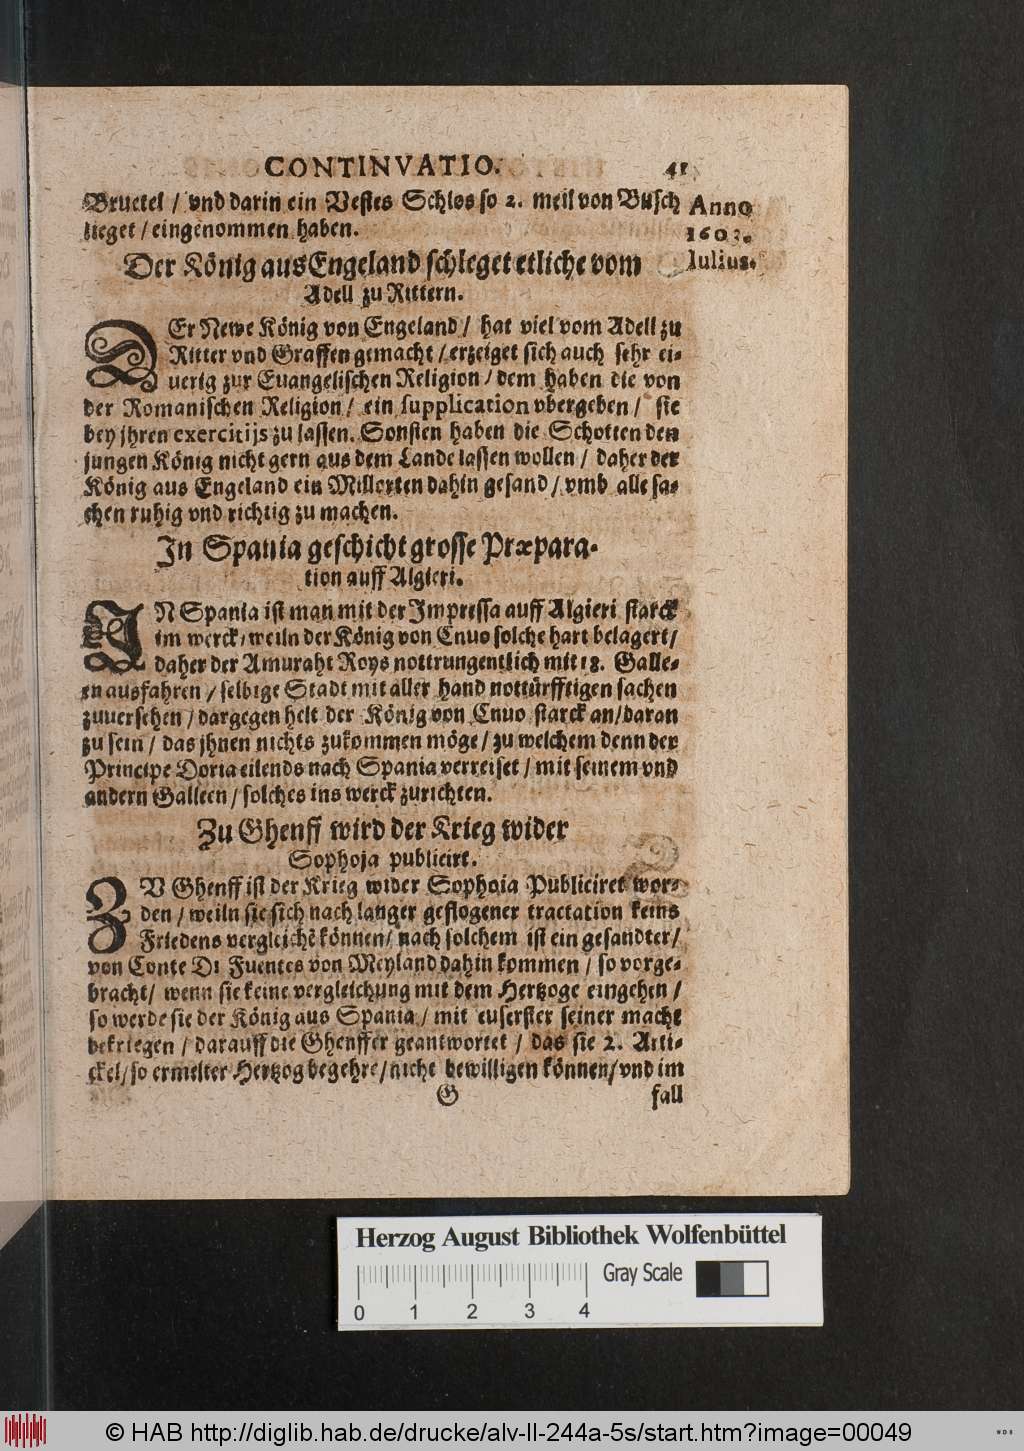 CONTINVATIO. 41
Bruetel / vnd darin ein Vestes Schlos so 2. meil von Busch
lieget / eingenommen haben.
Anno
1603.
Iulius.
Der König aus Engeland schleget etliche vom
Adell zu Rittern.
DEr Newe König von Engeland / hat viel vom Adell zu
Ritter vnd Graffen gemacht / erzeiget sich auch sehr ei-
uerig zur Euangelischen Religion / dem haben die von
der Romanischen Religion / ein supplication vbergeben / sie
bey jhren exercitijs zu lassen. Sonsten haben die Schotten den
jungen König nicht gern aus dem Lande lassen wollen / daher der
König aus Engeland ein Millorten dahin gesand / vmb alle sa-
chen ruhig vnd richtig zu machen.
In Spania geschicht grosse Præpara-
tion auff Algieri.
IN Spania ist man mit der Impressa auff Algieri starck
im werck / weiln der König von Cnuo solche hart belagert /
daher der Amuraht Roys nottrungentlich mit 18. Galle-
en ausfahren / selbige Stadt mit aller hand nottürfftigen sachen
zuuersehen / dargegen helt der König von Cnuo starck an / daran
zu sein / das jhnen nichts zukommen möge / zu welchem denn der
Principe Doria eilends nach Spania verreiset / mit seinem vnd
andern Galleen / solches ins werck zurichten.
Zu Ghenff wird der Krieg wider
Sophoja publicirt.
ZV Ghenff ist der Krieg wider Sophoia Publiciret wor-
den / weiln sie sich nach langer gepflogener tractation keins
Friedens vergleichẽ können / nach solchem ist ein gesandter /
von Conte Di Fuentes von Meyland dahin kommen / so vorge-
bracht / wenn sie keine vergleichung mit dem Hertzoge eingehen /
so werde sie der König aus Spania / mit euserster seiner macht
bekriegen / darauff die Ghenffer geantwortet / das sie 2. Arti-
ckel / so ermelter Hertzog begehre / nicht bewilligen können / vnd im
G fall
Herzog August Bibliothek Wolfenbüttel
Gray Scale
0 1 2 3 4
© HAB http://diglib.hab.de/drucke/alv-ll-244a-5s/start.htm?image=00049